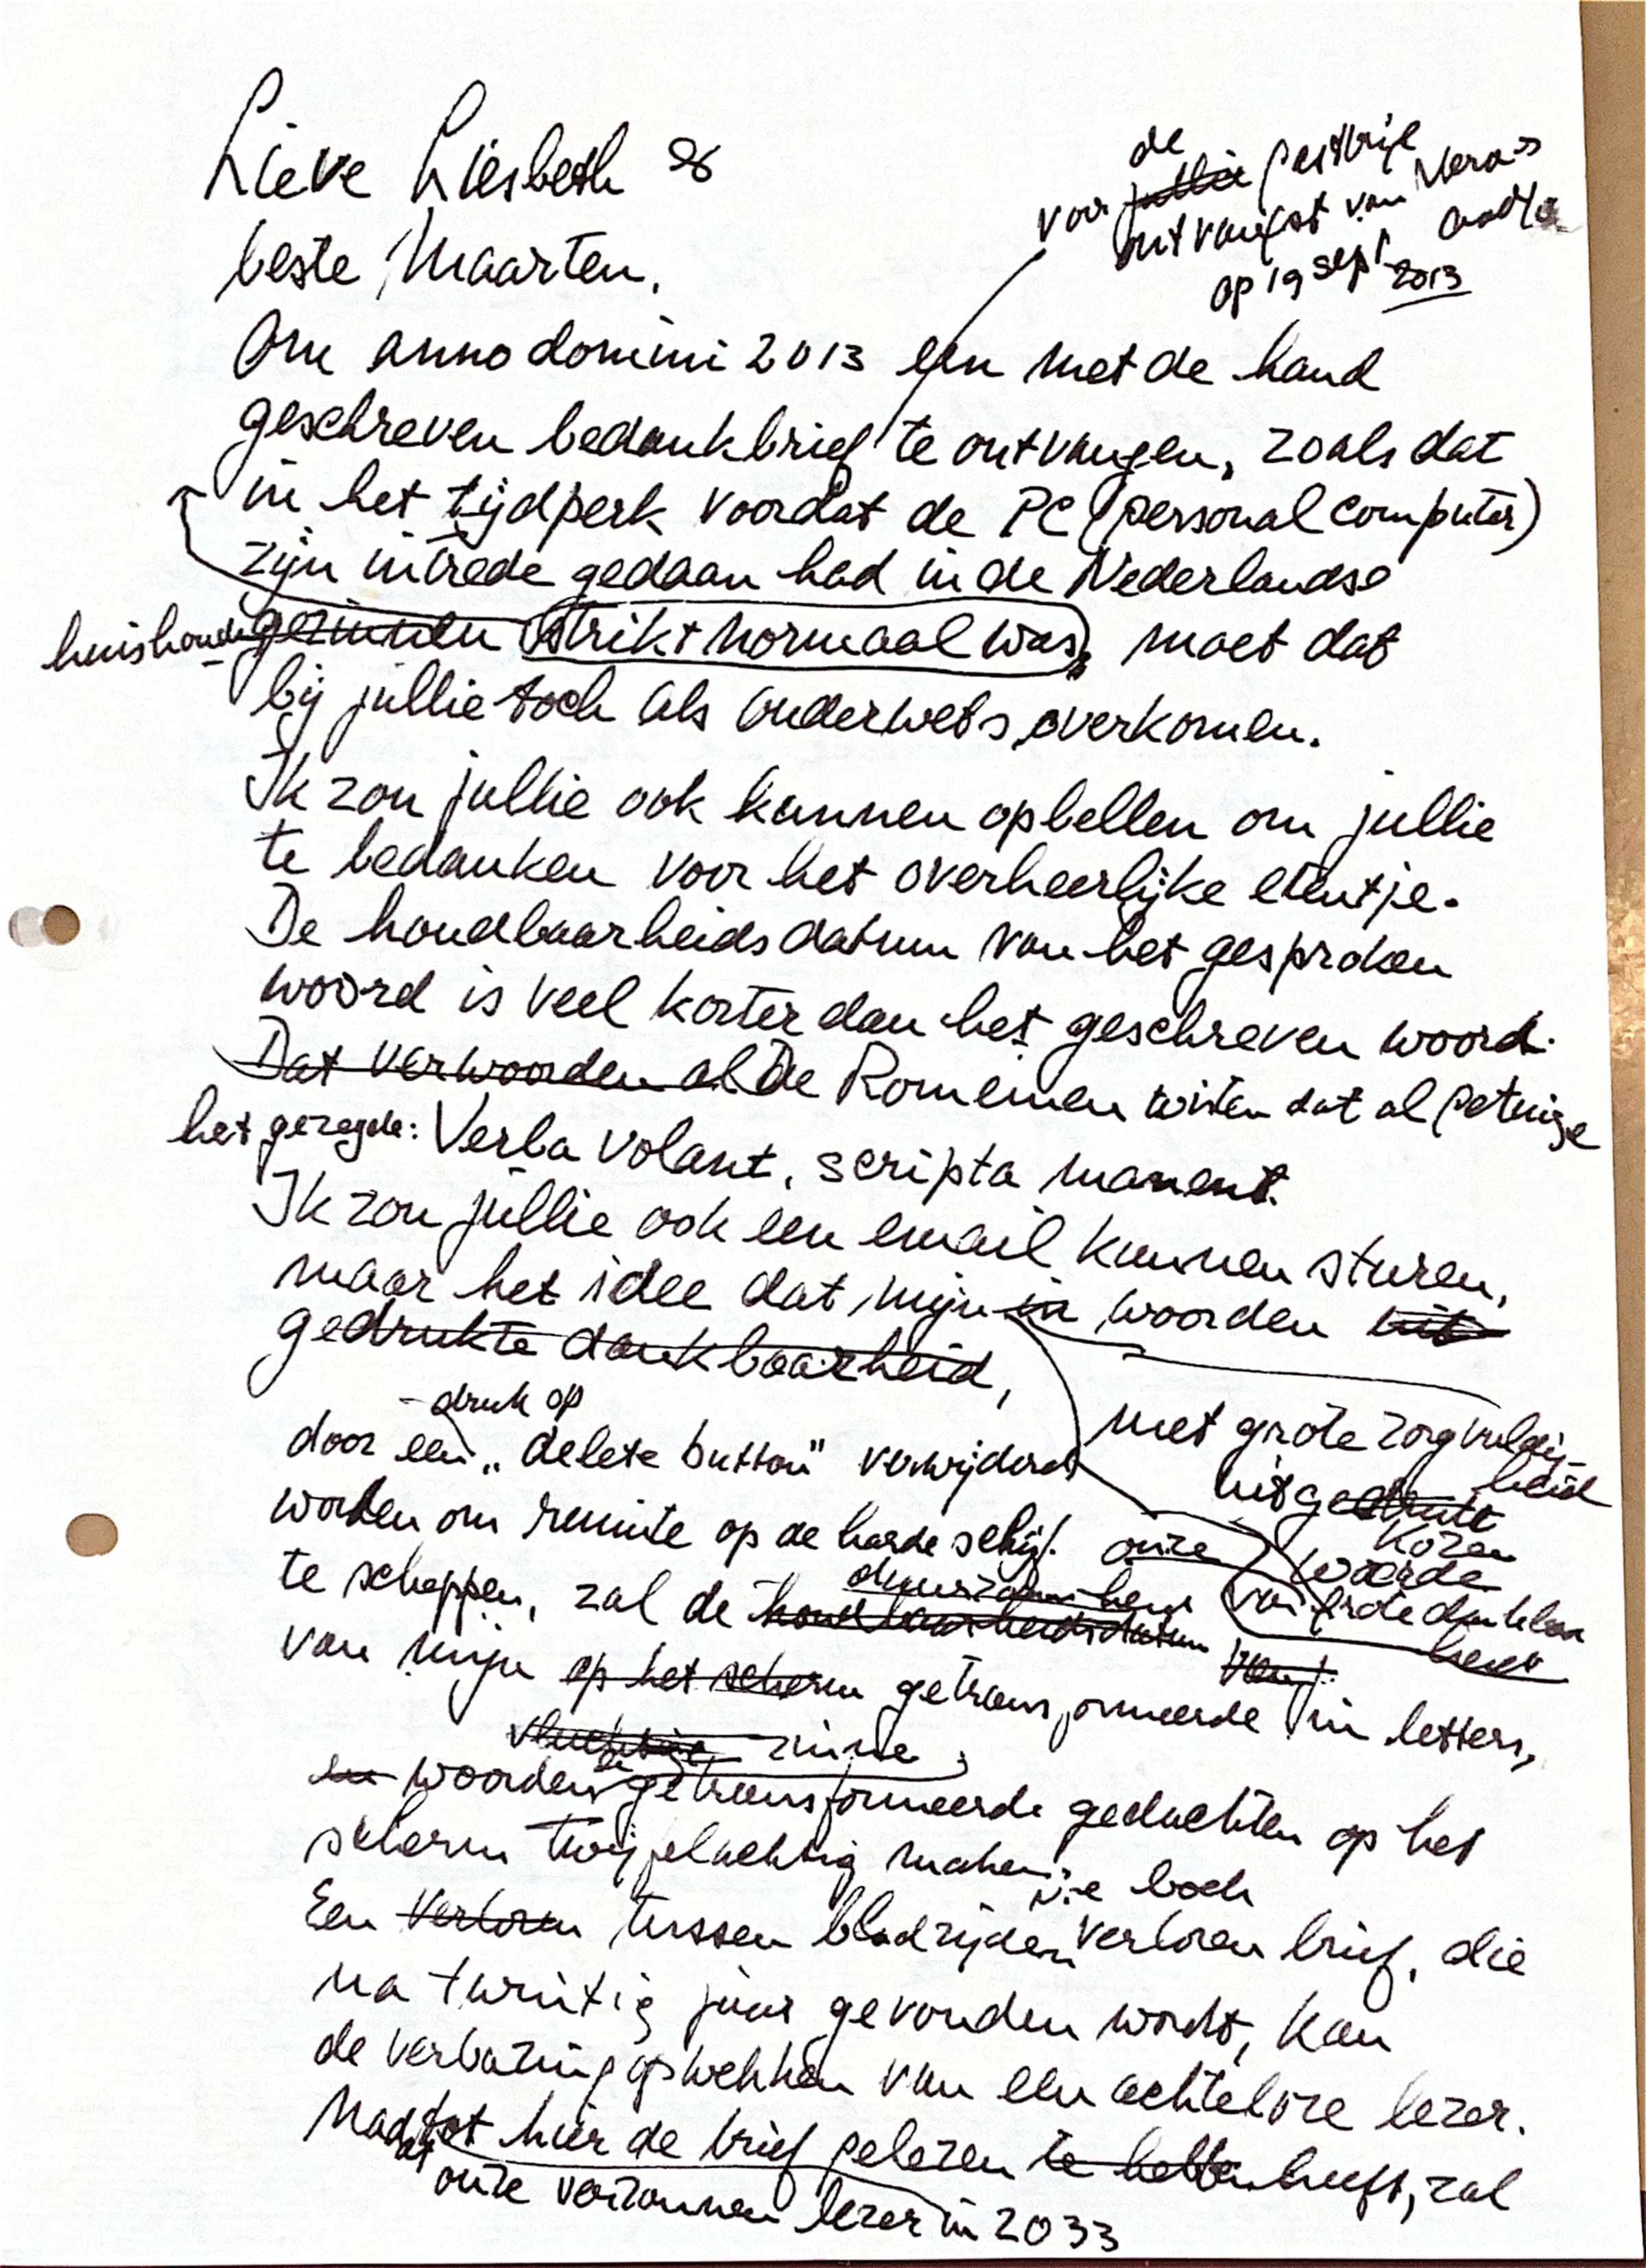 Lieve Liesbeth &
beste Maarten,
de
voor jullie pastbrije
ontvangst van Vera's
op 19 sept 2013
Om anno domini 2013 een met de hand
geschreven bedankbrief te ontvangen, zoals dat
in het tijdperk voordat de PC (personal computer)
zijn intrede gedaan had in de Nederlandse
huishoude gezinnen strikt normaal was, moet dat
bij jullie toch als ouderwets overkomen.
Ik zou jullie ook kunnen opbellen om jullie
te bedanken voor het overheerlijke etentje.
De houdbaarheidsdatum van het gesproken
woord is veel korter dan het geschreven woord.
Dat verwoorden al De Romeinen wisten dat al getuige
het gezegde: Verba volant, scripta manent.
Ik zou jullie ook een email kunnen sturen,
maar het idee dat mijn in woorden uit
gedrukte dankbaarheid,
met grote zorgvuldig-
heid
uitgedrukte
kozen
woorden
van grote dankbaar
heid
druk op
door een „delete button" verwijderd
worden om ruimte op de harde schijf. onze
te scheppen, zal de houdbaarheidsdatum
duurzaamheid
van mijn op het scherm getransformeerde in letters,
vluchtige zinne
en woorden getransformeerde gedachten op het
scherm twijfelachtig maken.
Een verloren tussen bladzijden verloren brief, die
boek
na twintig jaar gevonden wordt, kan
de verbazing opwekken van een achteloze lezer.
Nadat tot hier de brief gelezen te hebben heeft, zal
onze verzonnen lezer in 2033